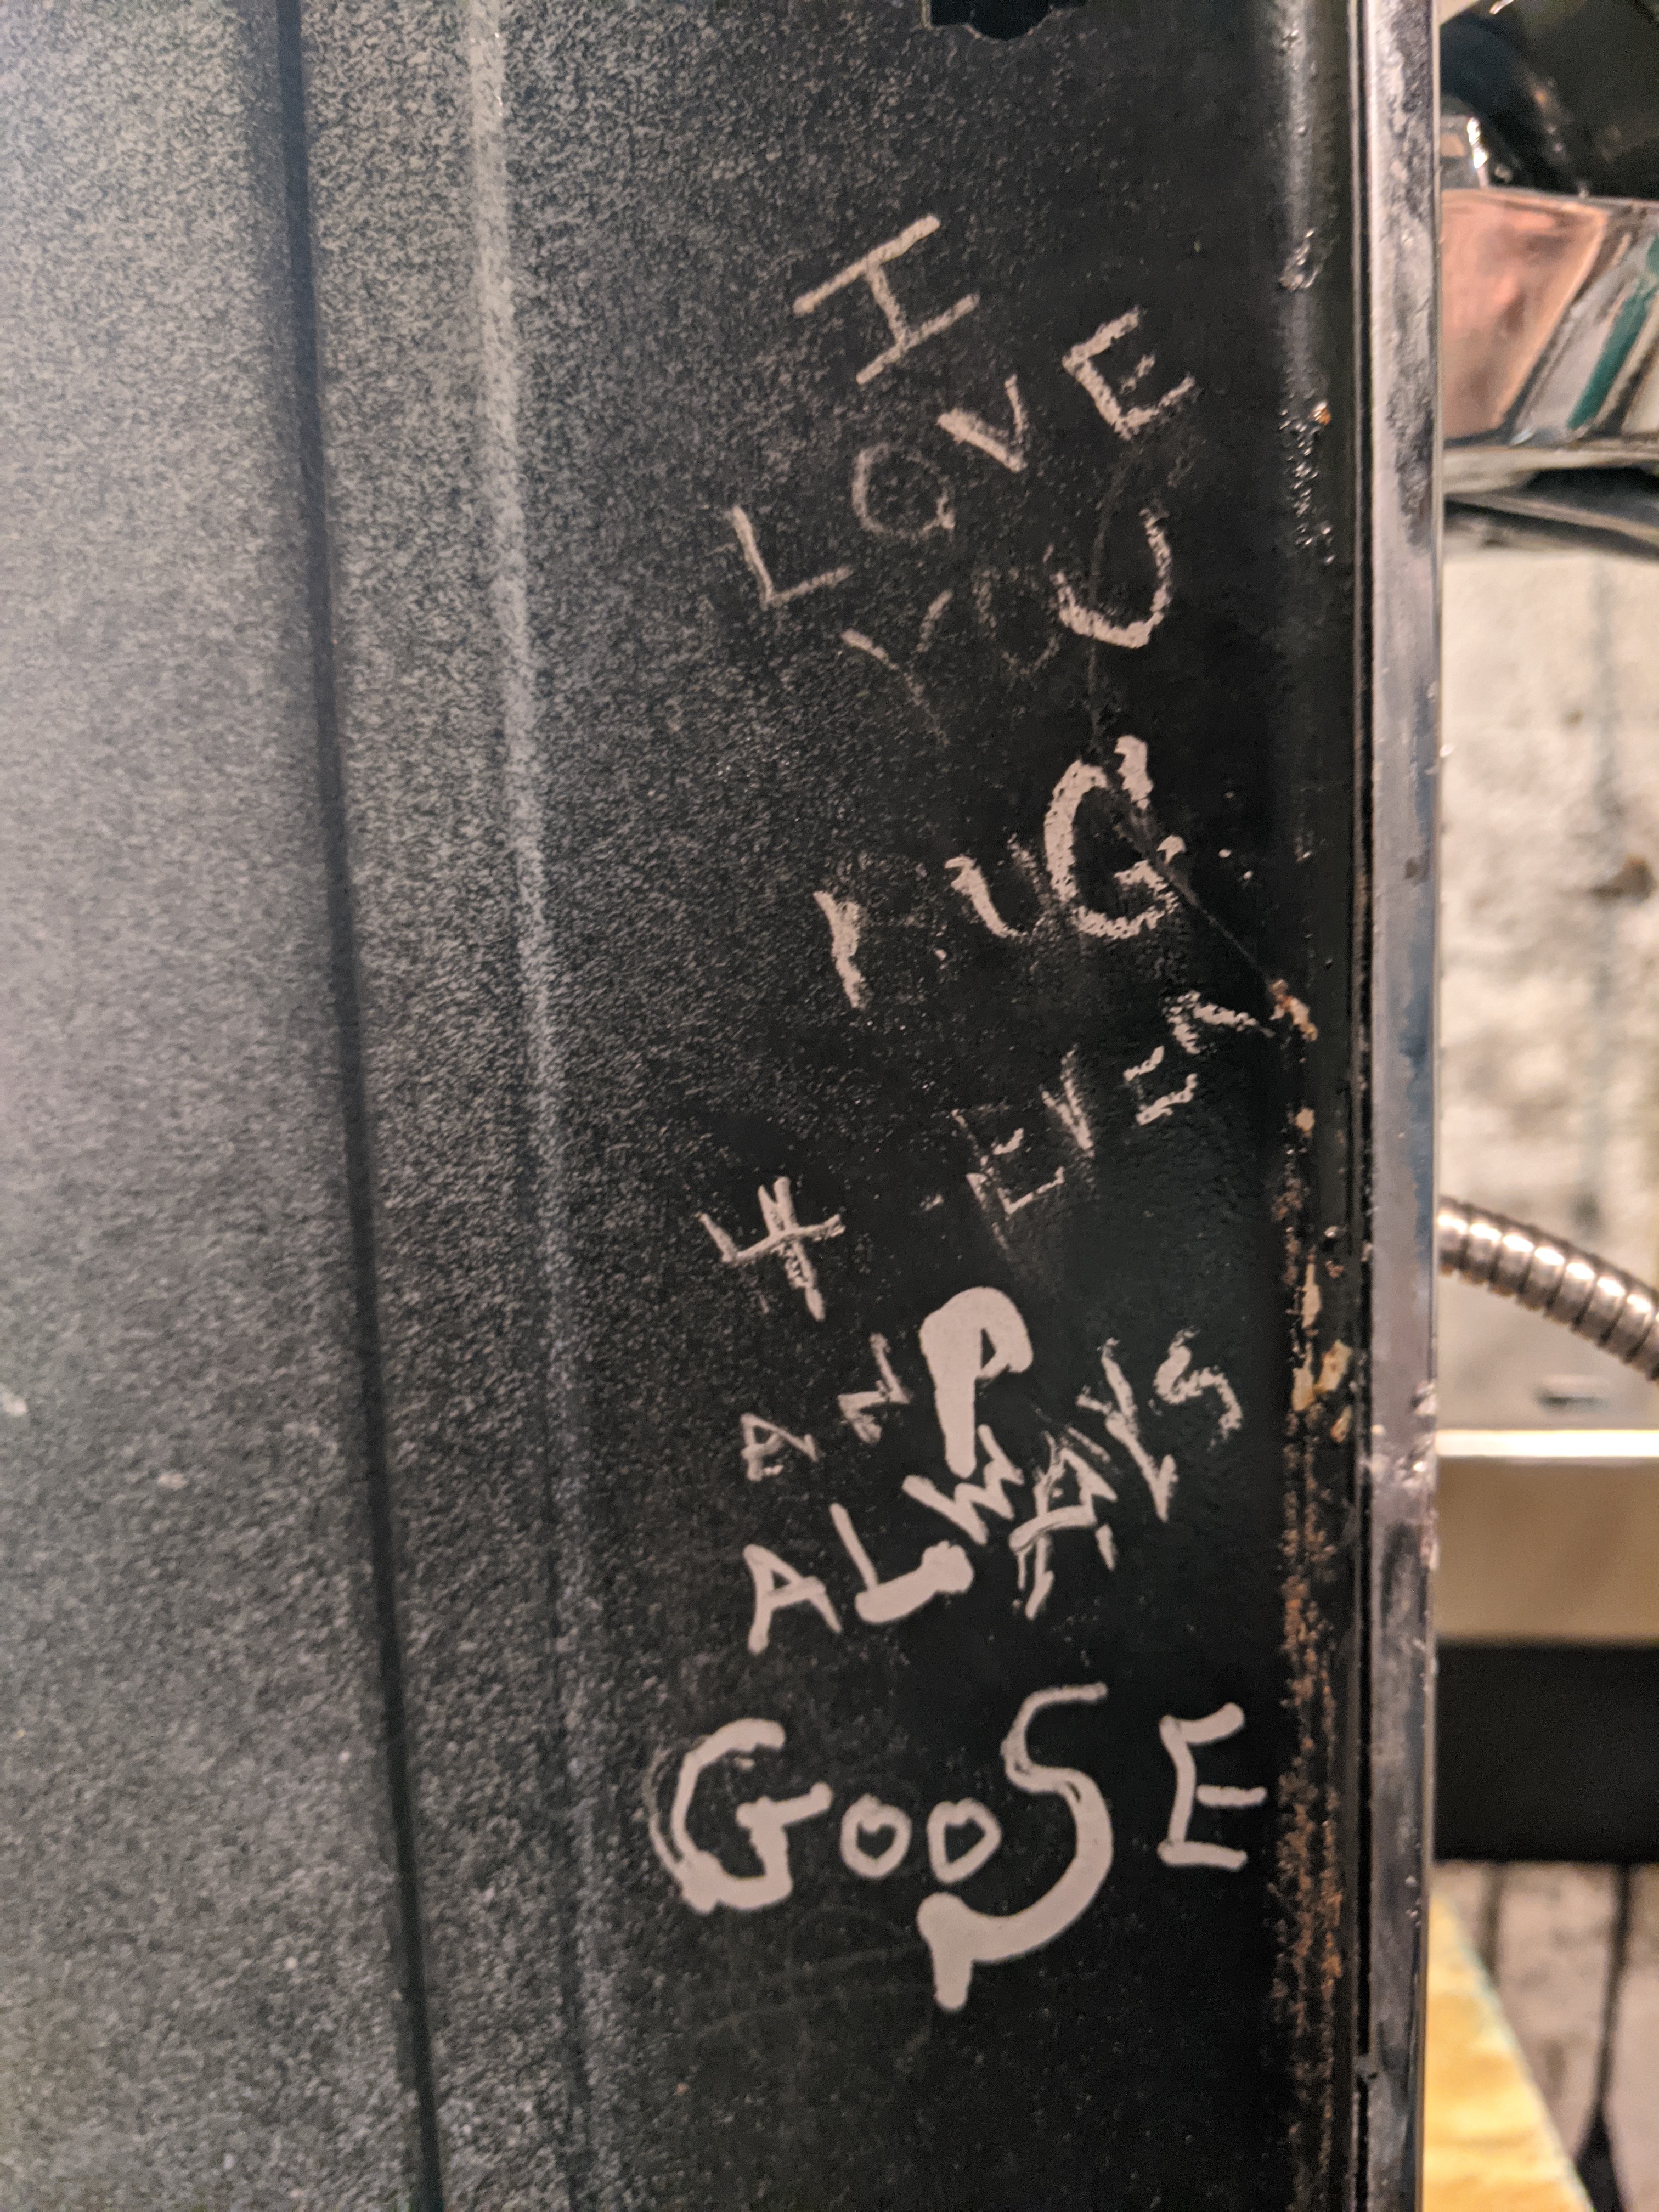 I
LOVE
YOU
4 EVER
AND
ALWAYS
GOOSE